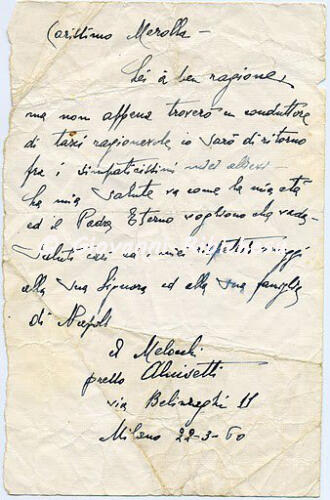 Carissimo Merolla -
Lei à ben ragione,
ma non appena troverò un conduttore
di taxi ragionevole io sarò di ritorno
fra i simpaticissimi miei allievi -
La mia salute va come la mia età
ed il Padre Eterno vogliono che vada -
Saluti cari ed i miei
alla Sua Signora ed alla Sua famiglia
di Napoli
il Melocchi
presso Alvisetti
via 11
Milano 22-3-60